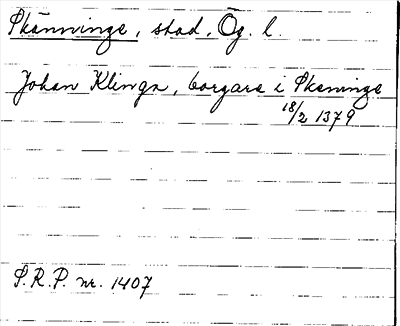 Skänninge, stad, Ög. l.
Johan Klinga, borgare i Skeninge
18/2 1379
S.R.P. nr. 1407